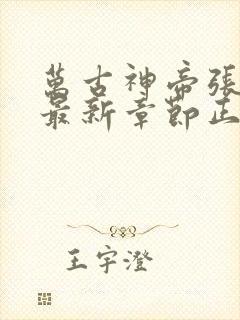 萬古神帝張
最新章節正
王宇澄